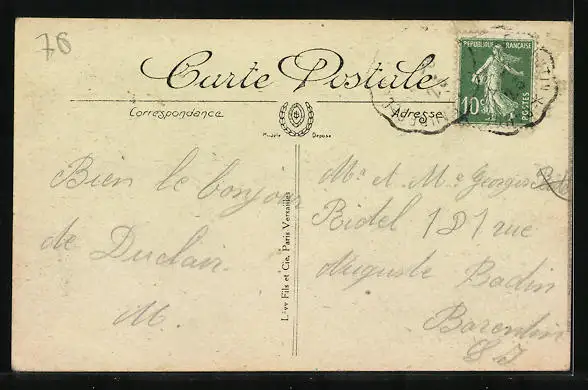 76
Carte Postale
Correspondance
Adresse
Modèle Déposé
RÉPUBLIQUE FRANÇAISE
10c
POSTES
Bien le bonjour
de Duclair.
M.
Mr. et Me. Georges
Bidel 181 rue
Auguste Badin
Barentin
S. I
Lévy Fils et Cie, Paris Versailles